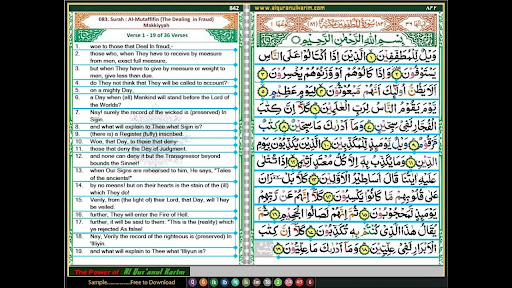 842
www.alquranulkarim.com
٨٤٢
083. Surah : Al-Mutaffifin (The Dealing in Fraud)
Makkiyyah
Verse 1 - 19 of 36 Verses
1. woe to those that Deal in fraud,-
2. those who, when They have to receive by measure
from men, exact full measure.
3. but when They have to give by measure or weight to
men, give less than due.
4. do They not think that They will be called to account?-
5. on a mighty Day,
6. a Day when (all) Mankind will stand before the Lord of
the Worlds?
7. Nay! surely the record of the wicked is (preserved) In
Sijjin.
8. and what will explain to Thee what Sijjin is?
9. (there is) a Register (fully) inscribed.
10. Woe, that Day, to those that deny-
11. those that deny the Day of Judgment.
12. and none can deny it but the Transgressor beyond
bounds the Sinner!
13. when Our Signs are rehearsed to him, He says, "Tales
of the ancients!"
14. by no means! but on their hearts is the stain of the (ill)
which They do!
15. Verily, from (the light of) their Lord, that Day, will They
be veiled.
16. further, They will enter the Fire of Hell.
17. further, it will be said to them: "This is the (reality) which
ye rejected As false!
18. Nay, Verily the record of the righteous is (preserved) In
'Illiyin.
19. and what will explain to Thee what 'Illiyun is?
بِسْمِ اللّٰهِ الرَّحْمٰنِ الرَّحِيْمِ
وَيْلٌ لِّلْمُطَفِّفِيْنَ ۝١ الَّذِيْنَ اِذَا اكْتَالُوْا عَلَى النَّاسِ
يَسْتَوْفُوْنَ ۝٢ وَاِذَا كَالُوْهُمْ اَوْ وَّزَنُوْهُمْ يُخْسِرُوْنَ ۝٣
اَلَا يَظُنُّ اُولٰٓئِكَ اَنَّهُمْ مَّبْعُوْثُوْنَ ۝٤ لِيَوْمٍ عَظِيْمٍ ۝٥
يَّوْمَ يَقُوْمُ النَّاسُ لِرَبِّ الْعٰلَمِيْنَ ۝٦ كَلَّآ اِنَّ كِتٰبَ
الْفُجَّارِ لَفِيْ سِجِّيْنٍ ۝٧ وَمَآ اَدْرٰىكَ مَا سِجِّيْنٌ ۝٨ كِتٰبٌ
مَّرْقُوْمٌ ۝٩ وَيْلٌ يَّوْمَئِذٍ لِّلْمُكَذِّبِيْنَ ۝١٠ الَّذِيْنَ يُكَذِّبُوْنَ بِيَوْمِ
الدِّيْنِ ۝١١ وَمَا يُكَذِّبُ بِهٖٓ اِلَّا كُلُّ مُعْتَدٍ اَثِيْمٍ ۝١٢ اِذَا تُتْلٰى
عَلَيْهِ اٰيٰتُنَا قَالَ اَسَاطِيْرُ الْاَوَّلِيْنَ ۝١٣ كَلَّا بَلْ رَانَ
عَلٰى قُلُوْبِهِمْ مَّا كَانُوْا يَكْسِبُوْنَ ۝١٤ كَلَّآ اِنَّهُمْ عَنْ رَّبِّهِمْ
يَوْمَئِذٍ لَّمَحْجُوْبُوْنَ ۝١٥ ثُمَّ اِنَّهُمْ لَصَالُوا الْجَحِيْمِ ۝١٦ ثُمَّ
يُقَالُ هٰذَا الَّذِيْ كُنْتُمْ بِهٖ تُكَذِّبُوْنَ ۝١٧ كَلَّآ اِنَّ كِتٰبَ
الْاَبْرَارِ لَفِيْ عِلِّيِّيْنَ ۝١٨ وَمَآ اَدْرٰىكَ مَا عِلِّيُّوْنَ ۝١٩
The Power of : Al Qur'anul Karim
Sample................Free to Download